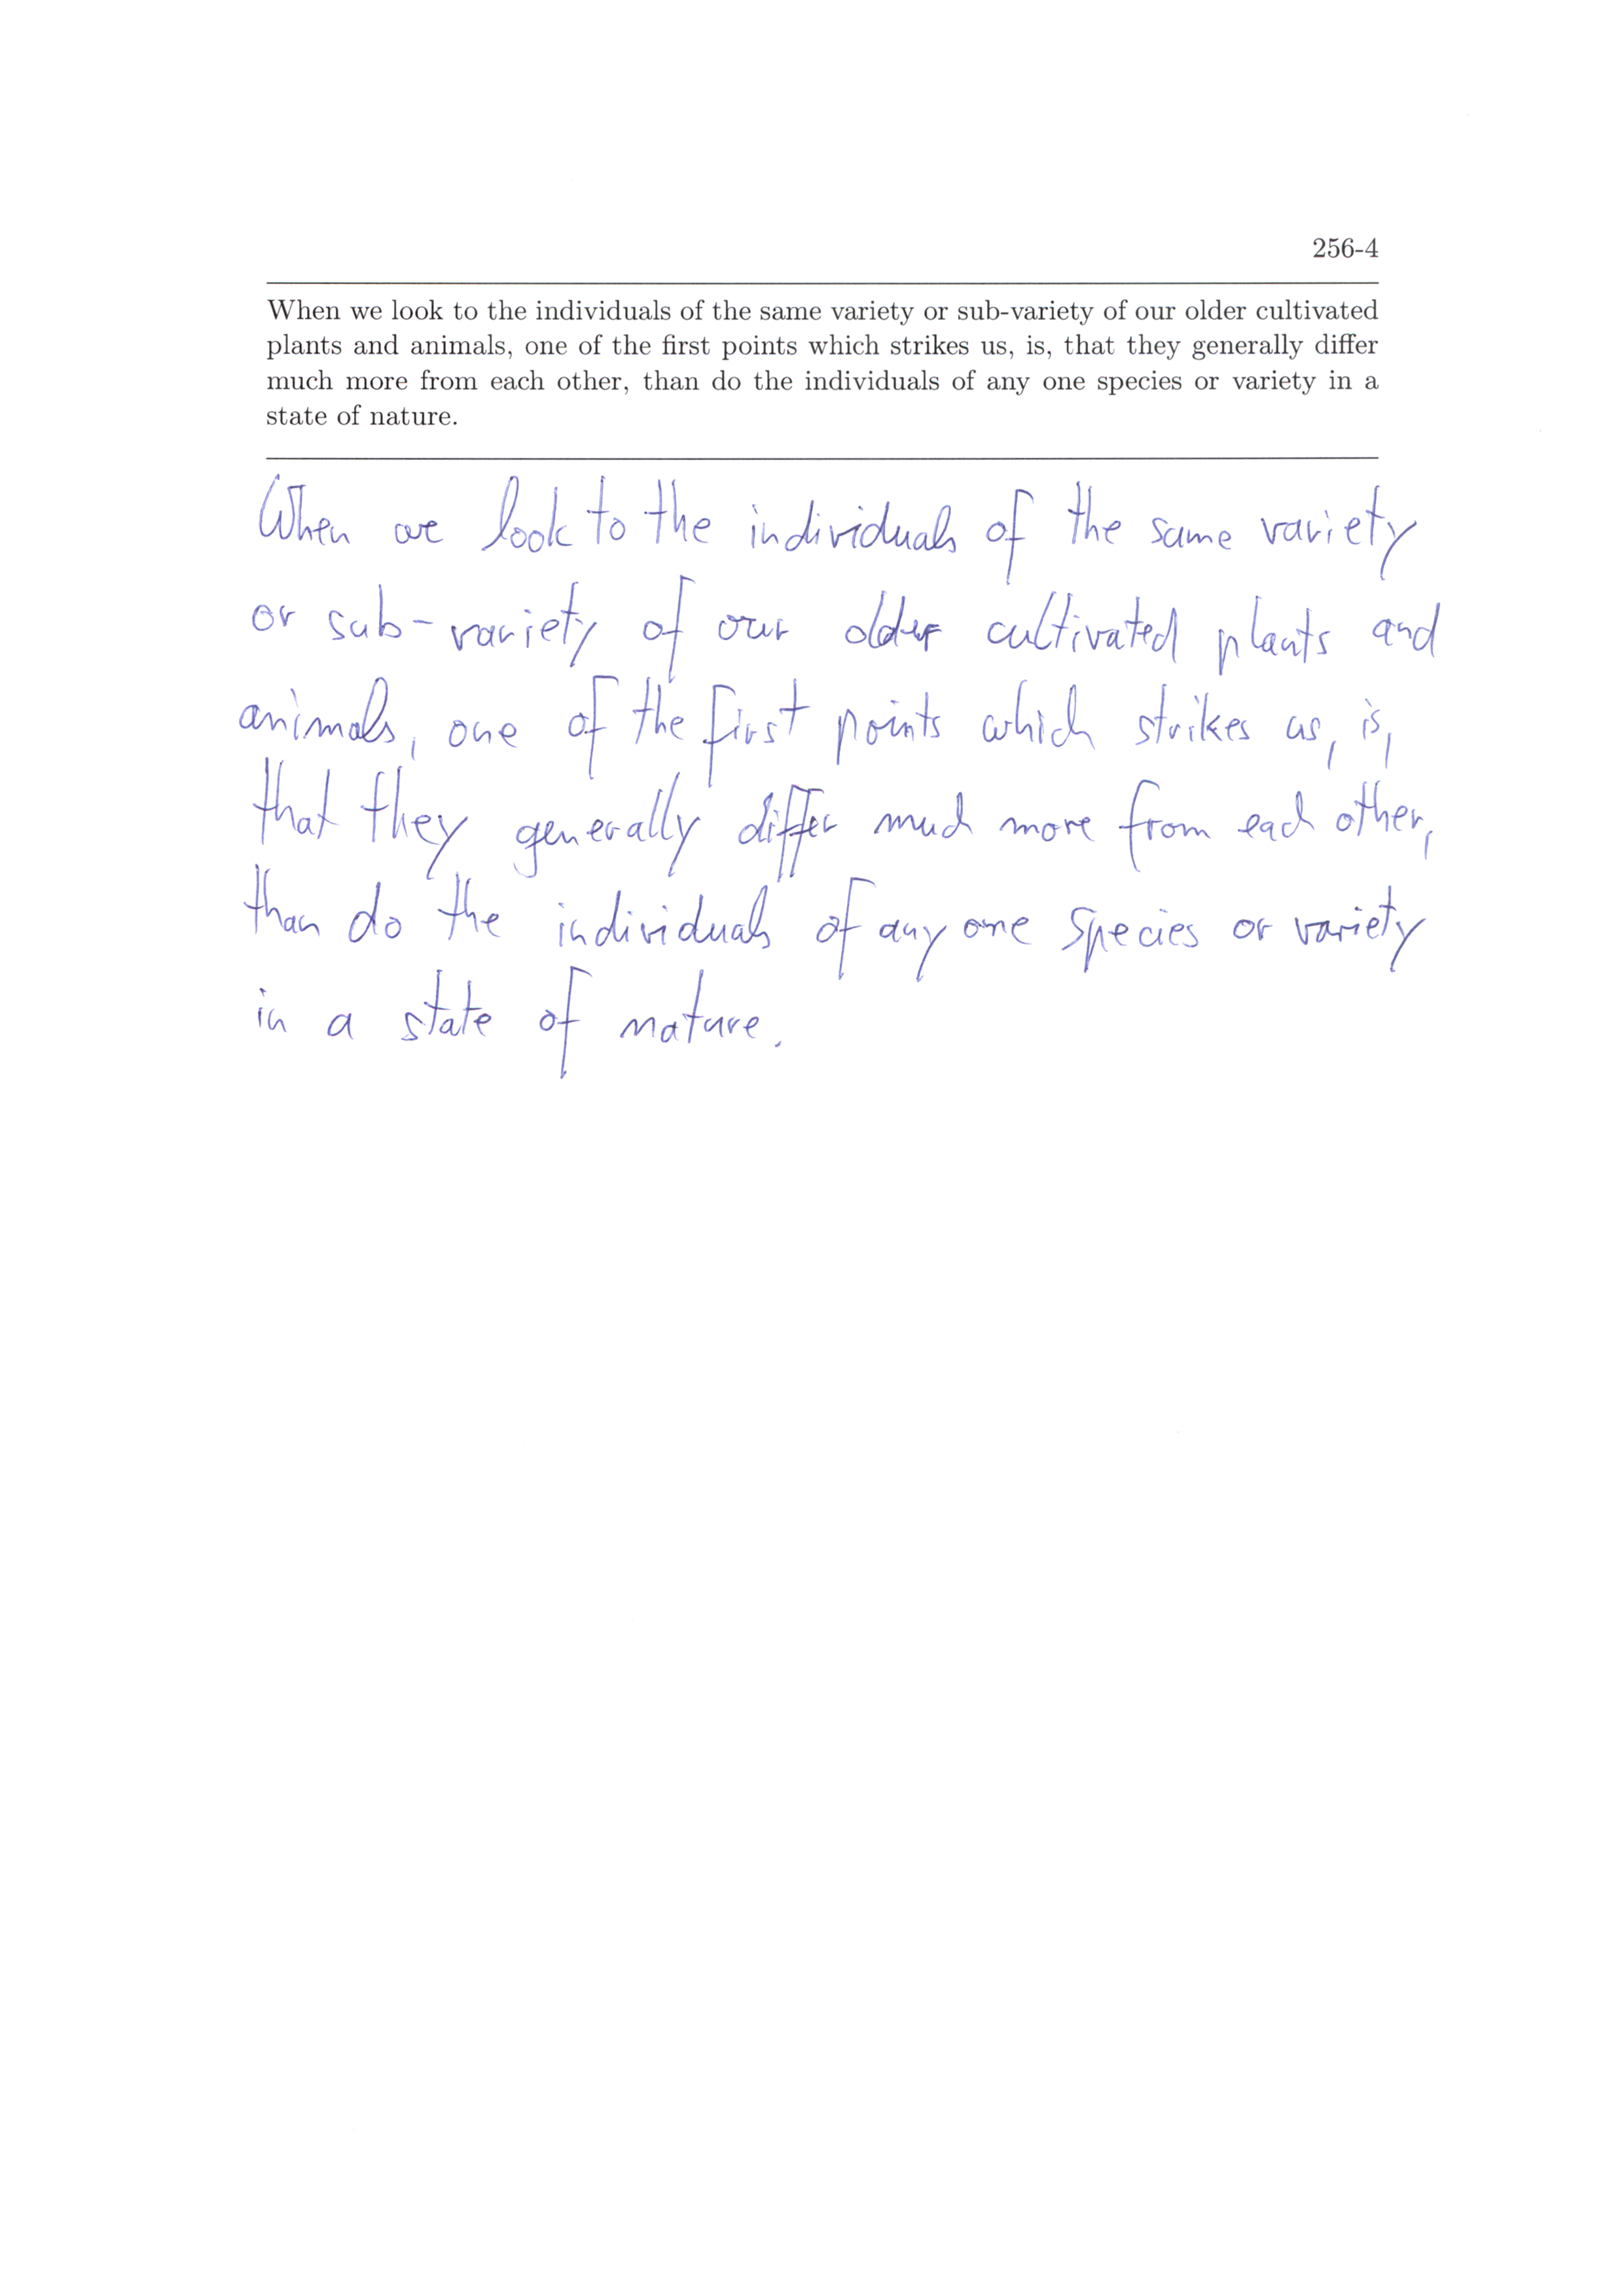 256-4
When we look to the individuals of the same variety or sub-variety of our older cultivated
plants and animals, one of the first points which strikes us, is, that they generally differ
much more from each other, than do the individuals of any one species or variety in a
state of nature.
When we look to the individuals of the same variety
or sub-variety of our older cultivated plants and
animals, one of the first points which strikes us, is,
that they generally differ much more from each other,
than do the individuals of any one species or variety
in a state of nature.